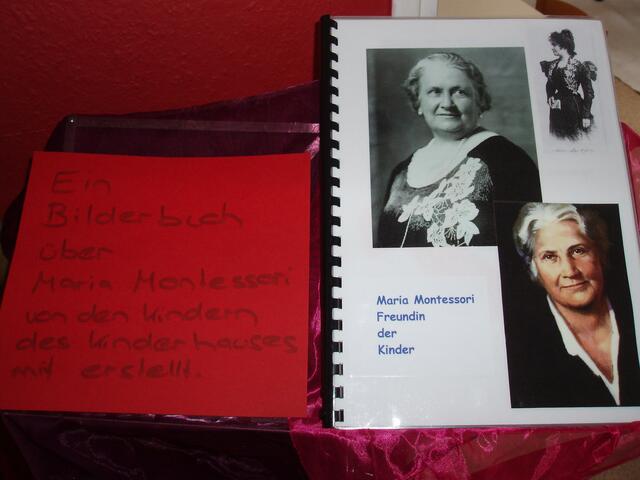 Ein
Bilderbuch
über
Maria Montessori
von den Kindern
des Kinderhauses
mit erstellt.
Maria Montessori
Freundin
der
Kinder